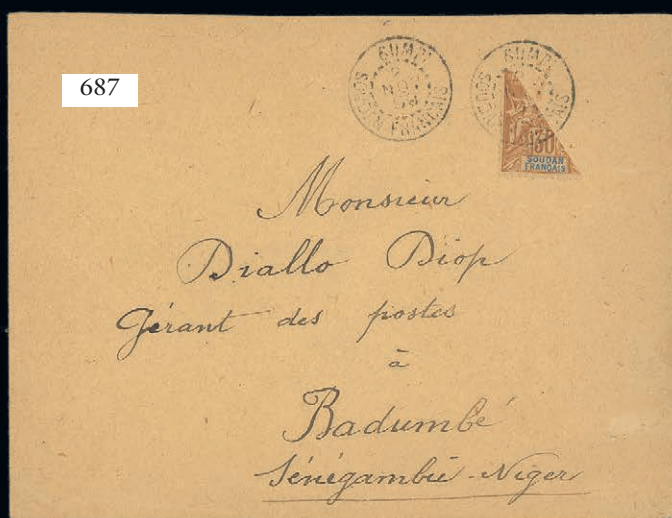 687
SOUDAN FRANÇAIS
30
SOUDAN
FRANÇAIS
Monsieur
Diallo Diop
Gérant des postes
à
Badumbé
Sénégambie-Niger